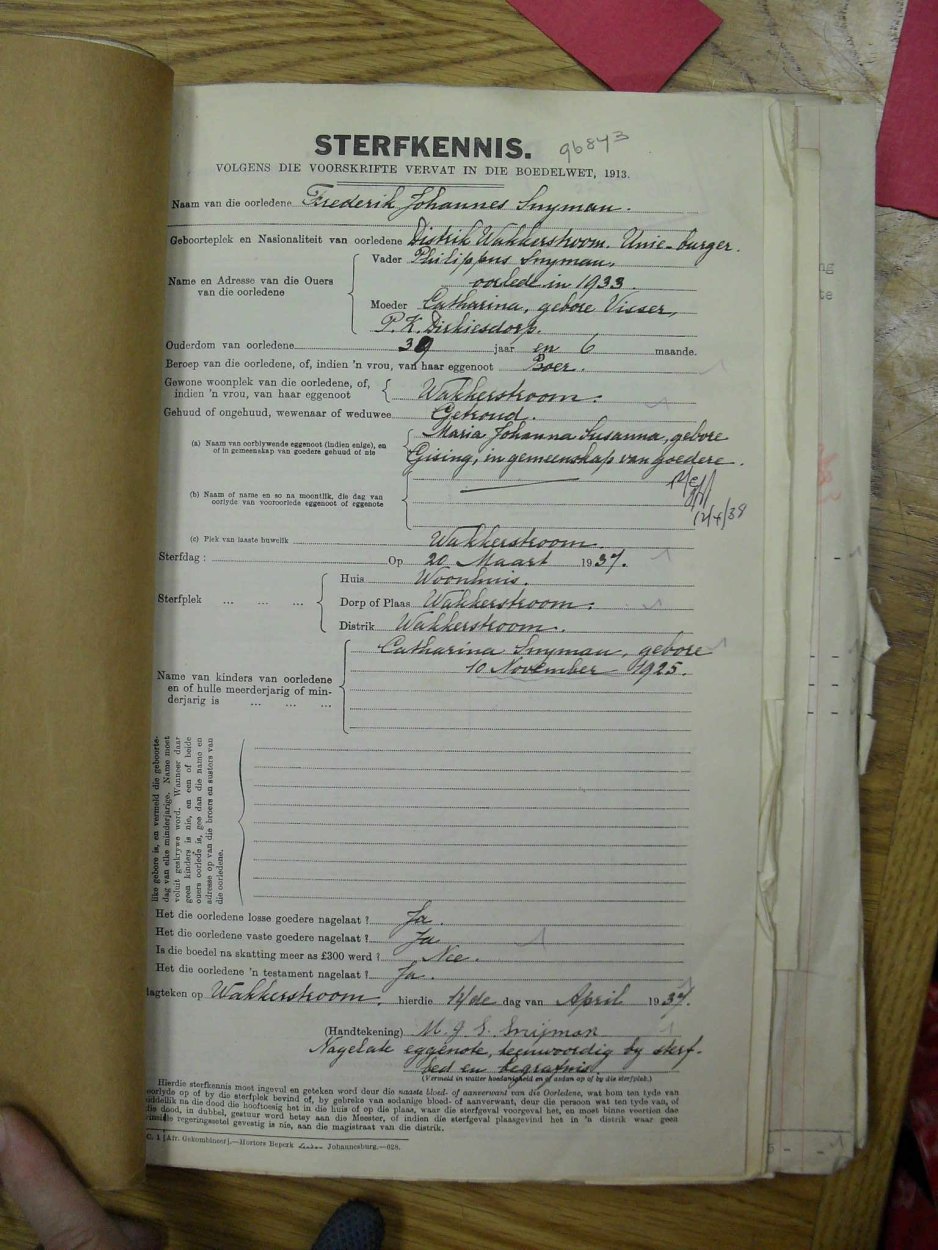 STERFKENNIS. 96843
VOLGENS DIE VOORSKRIFTE VERVAT IN DIE BOEDELWET, 1913.
Naam van die oorledene Frederik Johannes Snyman.
Geboorteplek en Nasionaliteit van oorledene Distrik Wakkerstroom. Unie-burger.
Name en Adresse van die Ouers van die oorledene
Vader Philippus Snyman,
oorlede in 1933.
Moeder Catharina, gebore Visser,
P.K. Dirkiesdorp.
Ouderdom van oorledene 39 jaar en 6 maande.
Beroep van die oorledene, of, indien 'n vrou, van haar eggenoot Boer.
Gewone woonplek van die oorledene, of,
indien 'n vrou, van haar eggenoot Wakkerstroom.
Gehuud of ongehuud, wewenaar of weduwee Getroud.
(a) Naam van oorblywende eggenoot (indien enige), en
of in gemeenskap van goedere gehuud of nie
Maria Johanna Susanna, gebore
Gising, in gemeenskap van goedere.
(b) Naam of name en so na moontlik, die dag van
oorlyde van vooroorlede eggenoot of eggenote
12/4/38
(c) Plek van laaste huwelik Wakkerstroom
Sterfdag: Op 20 Maart 1937.
Sterfplek ... ... ...
Huis Woonhuis.
Dorp of Plaas Wakkerstroom.
Distrik Wakkerstroom.
Name van kinders van oorledene
en of hulle meerderjarig of min-
derjarig is ... ... ...
Catharina Snyman, gebore
10 November 1925.
like gebore is, en vermeld die geboorte-
dag van elke minderjarige. Name moet
voluit geskrywe word. Wanneer daar
geen kinders is nie, en een of beide
ouers oorlede is, gee dan die name en
adresse op van die broers en susters van
die oorledene.
Het die oorledene losse goedere nagelaat? Ja.
Het die oorledene vaste goedere nagelaat? Ja
Is die boedel na skatting meer as £300 werd? Nee.
Het die oorledene 'n testament nagelaat? Ja.
agteken op Wakkerstroom. hierdie 14de dag van April 1937.
(Handtekening) M. J. S. Snijman
Nagelate eggenote, teenwoordig by sterf-
bed en begrafnis
(Vermeld in watter hoedanigheid en of aldan op of by die sterfplek.)
Hierdie sterfkennis moet ingevul en geteken word deur die naaste bloed- of aanverwant van die Oorledene, wat hom ten tyde van
oorlyde op of by die sterfplek bevind of, by gebreke van sodanige bloed- of aanverwant, deur die persoon wat ten tyde van, of
middellik na die dood die hooftoesig het in die huis of op die plaas, waar die sterfgeval voorgeval het, en moet binne veertien dae
die dood, in dubbel, gestuur word hetsy aan die Meester, of indien die sterfgeval plaasgevind het in 'n distrik waar geen
regeringssetel gevestig is nie, aan die magistraat van die distrik.
C. 1 [Afr. Gekombineer].—Hortors Beperk Johannesburg.—628.